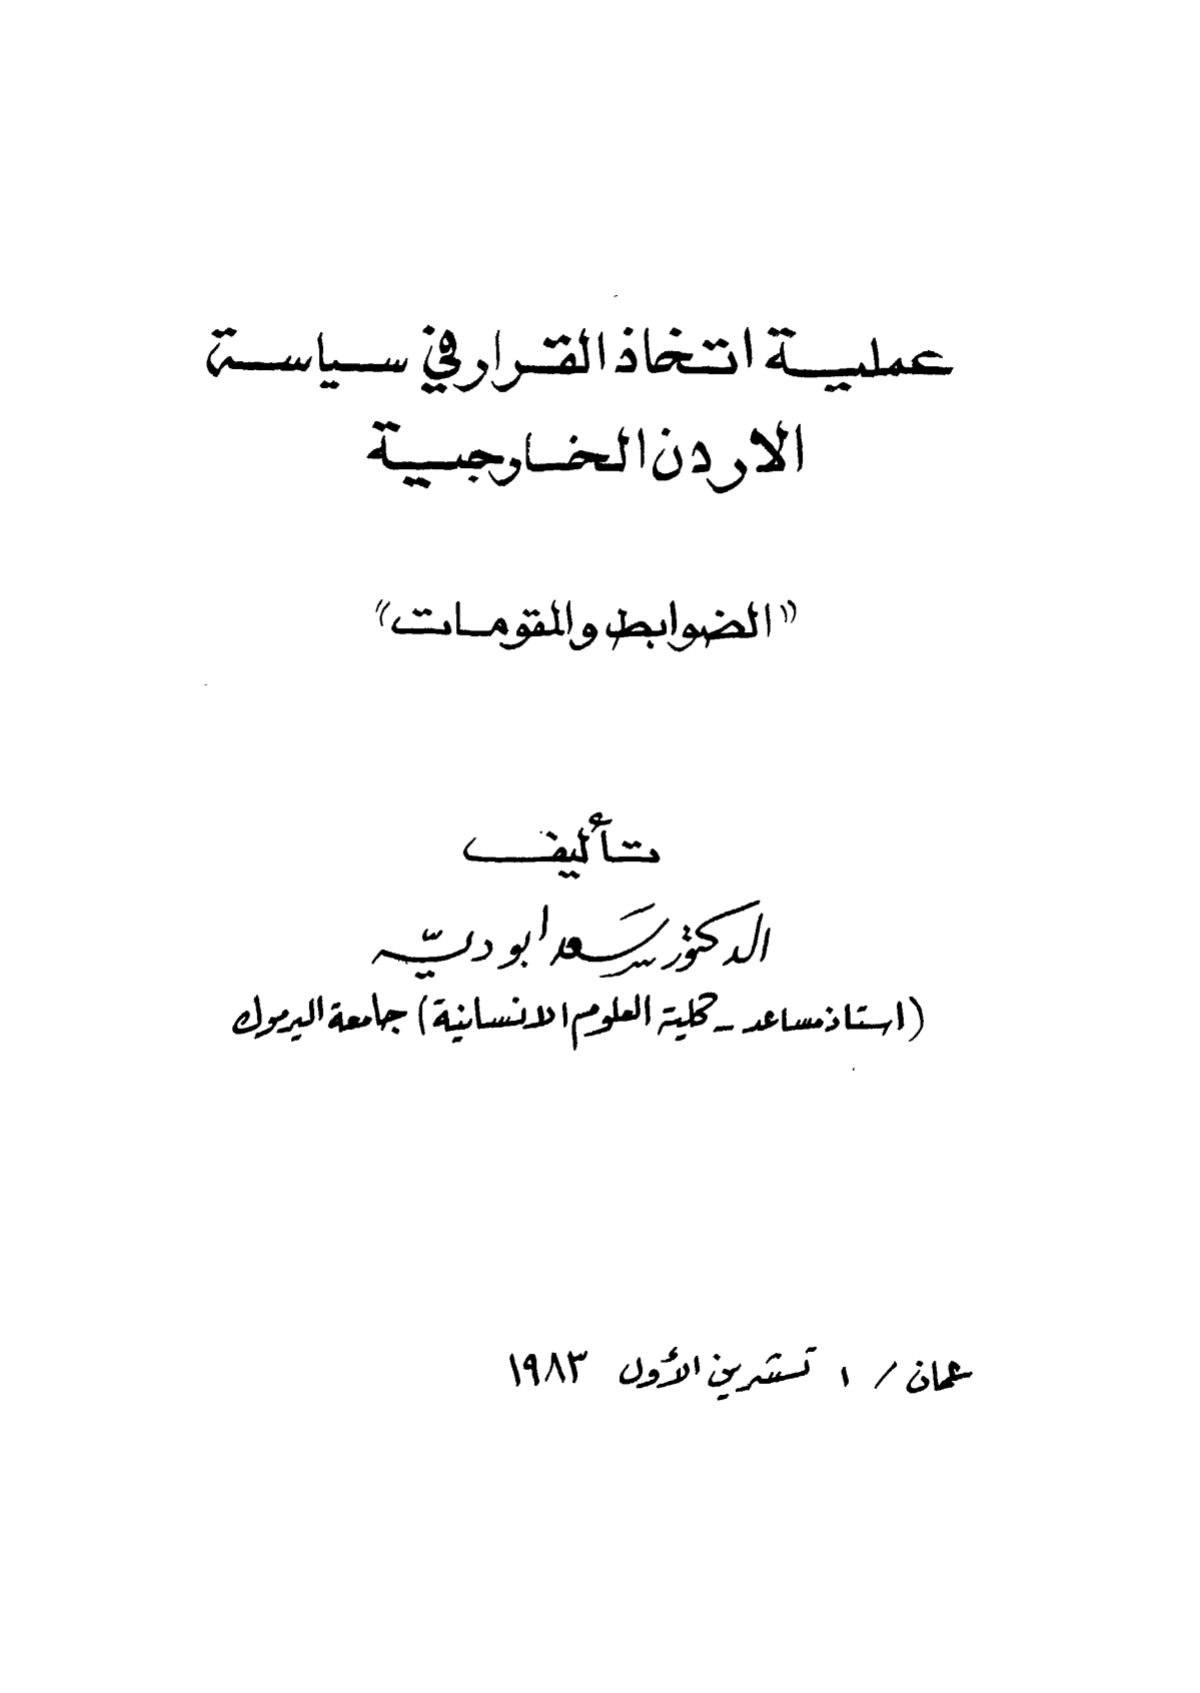 عملية اتخاذ القرار في سياسة
الاردن الخارجية
"الضوابط والمقومات"
تأليف
الدكتور سعد ابو ديّه
(استاذ مساعد - كلية العلوم الانسانية) جامعة اليرموك
عمان / ١ تشرين الأول ١٩٨٣